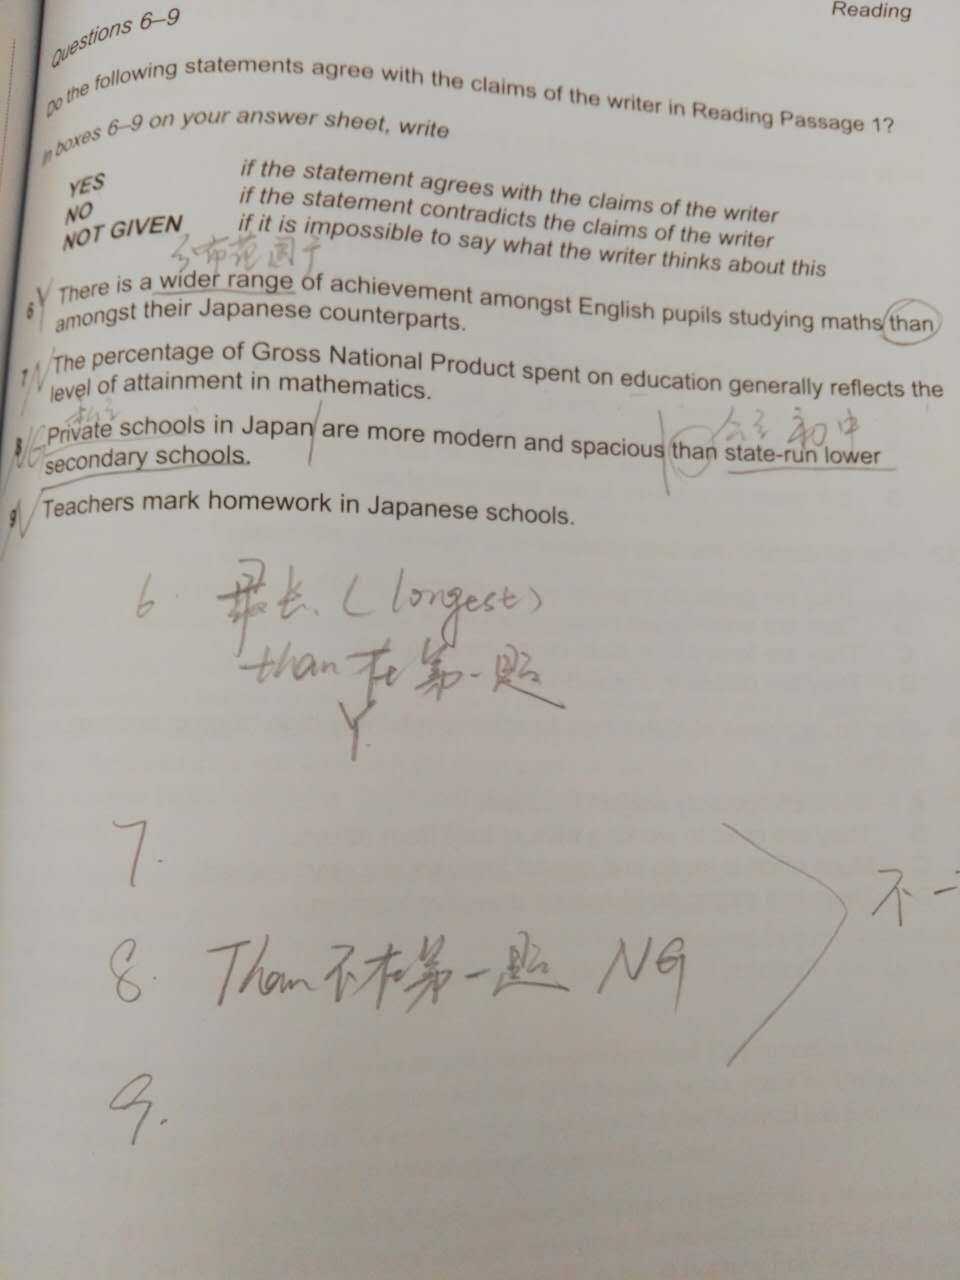 Reading
Questions 6–9
Do the following statements agree with the claims of the writer in Reading Passage 1?
In boxes 6–9 on your answer sheet, write
YES if the statement agrees with the claims of the writer
NO if the statement contradicts the claims of the writer
NOT GIVEN if it is impossible to say what the writer thinks about this
分布范围广
6 Y There is a wider range of achievement amongst English pupils studying maths than
amongst their Japanese counterparts.
7 N The percentage of Gross National Product spent on education generally reflects the
level of attainment in mathematics.
私立 公立 初中
8 NG Private schools in Japan are more modern and spacious than state-run lower
secondary schools.
9 N Teachers mark homework in Japanese schools.
6. 最长 (longest)
than在第一题
Y.
7.
不一
8. Than不在第一题 NG
9.